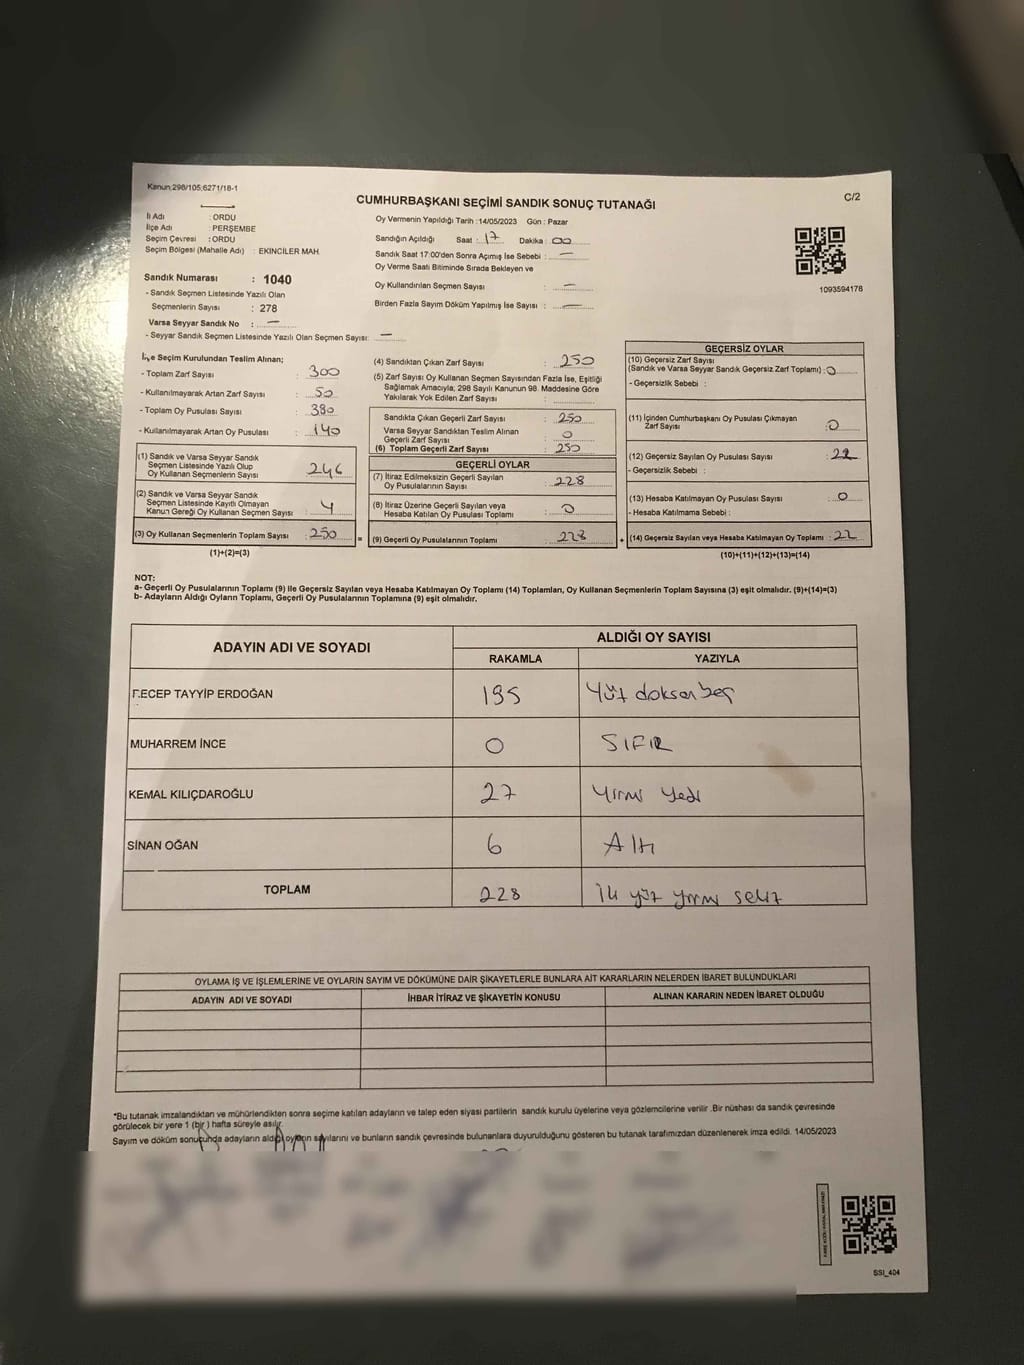 Kanun;298/105;6271/18-1
C/2
CUMHURBAŞKANI SEÇİMİ SANDIK SONUÇ TUTANAĞI
İl Adı : ORDU
İlçe Adı : PERŞEMBE
Seçim Çevresi : ORDU
Seçim Bölgesi (Mahalle Adı) : EKİNCİLER MAH.
Sandık Numarası : 1040
- Sandık Seçmen Listesinde Yazılı Olan
Seçmenlerin Sayısı : 278
Varsa Seyyar Sandık No : —
- Seyyar Sandık Seçmen Listesinde Yazılı Olan Seçmen Sayısı: —
Oy Vermenin Yapıldığı Tarih :14/05/2023 Gün : Pazar
Sandığın Açıldığı Saat : 17 Dakika : 00
Sandık Saat 17:00'den Sonra Açımış İse Sebebi : —
Oy Verme Saati Bitiminde Sırada Bekleyen ve
Oy Kullandırılan Seçmen Sayısı : —
Birden Fazla Sayım Döküm Yapılmış İse Sayısı : —
1093594178
İlçe Seçim Kurulundan Teslim Alınan;
- Toplam Zarf Sayısı : 300
- Kullanılmayarak Artan Zarf Sayısı : 50
- Toplam Oy Pusulası Sayısı : 380
- Kullanılmayarak Artan Oy Pusulası : 140
(1) Sandık ve Varsa Seyyar Sandık
Seçmen Listesinde Yazılı Olup
Oy Kullanan Seçmenlerin Sayısı : 246
(2) Sandık ve Varsa Seyyar Sandık
Seçmen Listesinde Kayıtlı Olmayan
Kanun Gereği Oy Kullanan Seçmen Sayısı : 4
(3) Oy Kullanan Seçmenlerin Toplam Sayısı : 250
(1)+(2)=(3)
(4) Sandıktan Çıkan Zarf Sayısı : 250
(5) Zarf Sayısı Oy Kullanan Seçmen Sayısından Fazla İse, Eşitliği
Sağlamak Amacıyla, 298 Sayılı Kanunun 98. Maddesine Göre
Yakılarak Yok Edilen Zarf Sayısı :
Sandıkta Çıkan Geçerli Zarf Sayısı : 250
Varsa Seyyar Sandıktan Teslim Alınan
Geçerli Zarf Sayısı : 0
(6) Toplam Geçerli Zarf Sayısı : 250
GEÇERLİ OYLAR
(7) İtiraz Edilmeksizin Geçerli Sayılan
Oy Pusulalarının Sayısı : 228
(8) İtiraz Üzerine Geçerli Sayılan veya
Hesaba Katılan Oy Pusulası Toplamı : 0
(9) Geçerli Oy Pusulalarının Toplamı : 228
GEÇERSİZ OYLAR
(10) Geçersiz Zarf Sayısı
(Sandık ve Varsa Seyyar Sandık Geçersiz Zarf Toplamı) : 0
- Geçersizlik Sebebi :
(11) İçinden Cumhurbaşkanı Oy Pusulası Çıkmayan
Zarf Sayısı : 0
(12) Geçersiz Sayılan Oy Pusulası Sayısı : 22
- Geçersizlik Sebebi :
(13) Hesaba Katılmayan Oy Pusulası Sayısı : 0
- Hesaba Katılmama Sebebi :
(14) Geçersiz Sayılan veya Hesaba Katılmayan Oy Toplamı : 22
(10)+(11)+(12)+(13)=(14)
NOT:
a- Geçerli Oy Pusulalarının Toplamı (9) ile Geçersiz Sayılan veya Hesaba Katılmayan Oy Toplamı (14) Toplamları, Oy Kullanan Seçmenlerin Toplam Sayısına (3) eşit olmalıdır. (9)+(14)=(3)
b- Adayların Aldığı Oyların Toplamı, Geçerli Oy Pusulalarının Toplamına (9) eşit olmalıdır.
ADAYIN ADI VE SOYADI ALDIĞI OY SAYISI
RAKAMLA YAZIYLA
RECEP TAYYİP ERDOĞAN 195 Yüz doksan beş
MUHARREM İNCE 0 SIFIR
KEMAL KILIÇDAROĞLU 27 Yirmi yedi
SİNAN OĞAN 6 Altı
TOPLAM 228 İki yüz yirmi sekiz
OYLAMA İŞ VE İŞLEMLERİNE VE OYLARIN SAYIM VE DÖKÜMÜNE DAİR ŞİKAYETLERLE BUNLARA AİT KARARLARIN NELERDEN İBARET BULUNDUKLARI
ADAYIN ADI VE SOYADI İHBAR İTİRAZ VE ŞİKAYETİN KONUSU ALINAN KARARIN NEDEN İBARET OLDUĞU
*Bu tutanak imzalandıktan ve mühürlendikten sonra seçime katılan adayların ve talep eden siyasi partilerin sandık kurulu üyelerine veya gözlemcilerine verilir .Bir nüshası da sandık çevresinde
görülecek bir yere 1 (bir ) hafta süreyle asılır.
Sayım ve döküm sonucunda adayların aldığı oyların sayılarını ve bunların sandık çevresinde bulunanlara duyurulduğunu gösteren bu tutanak tarafımızdan düzenlenerek imza edildi. 14/05/2023
SSI_404